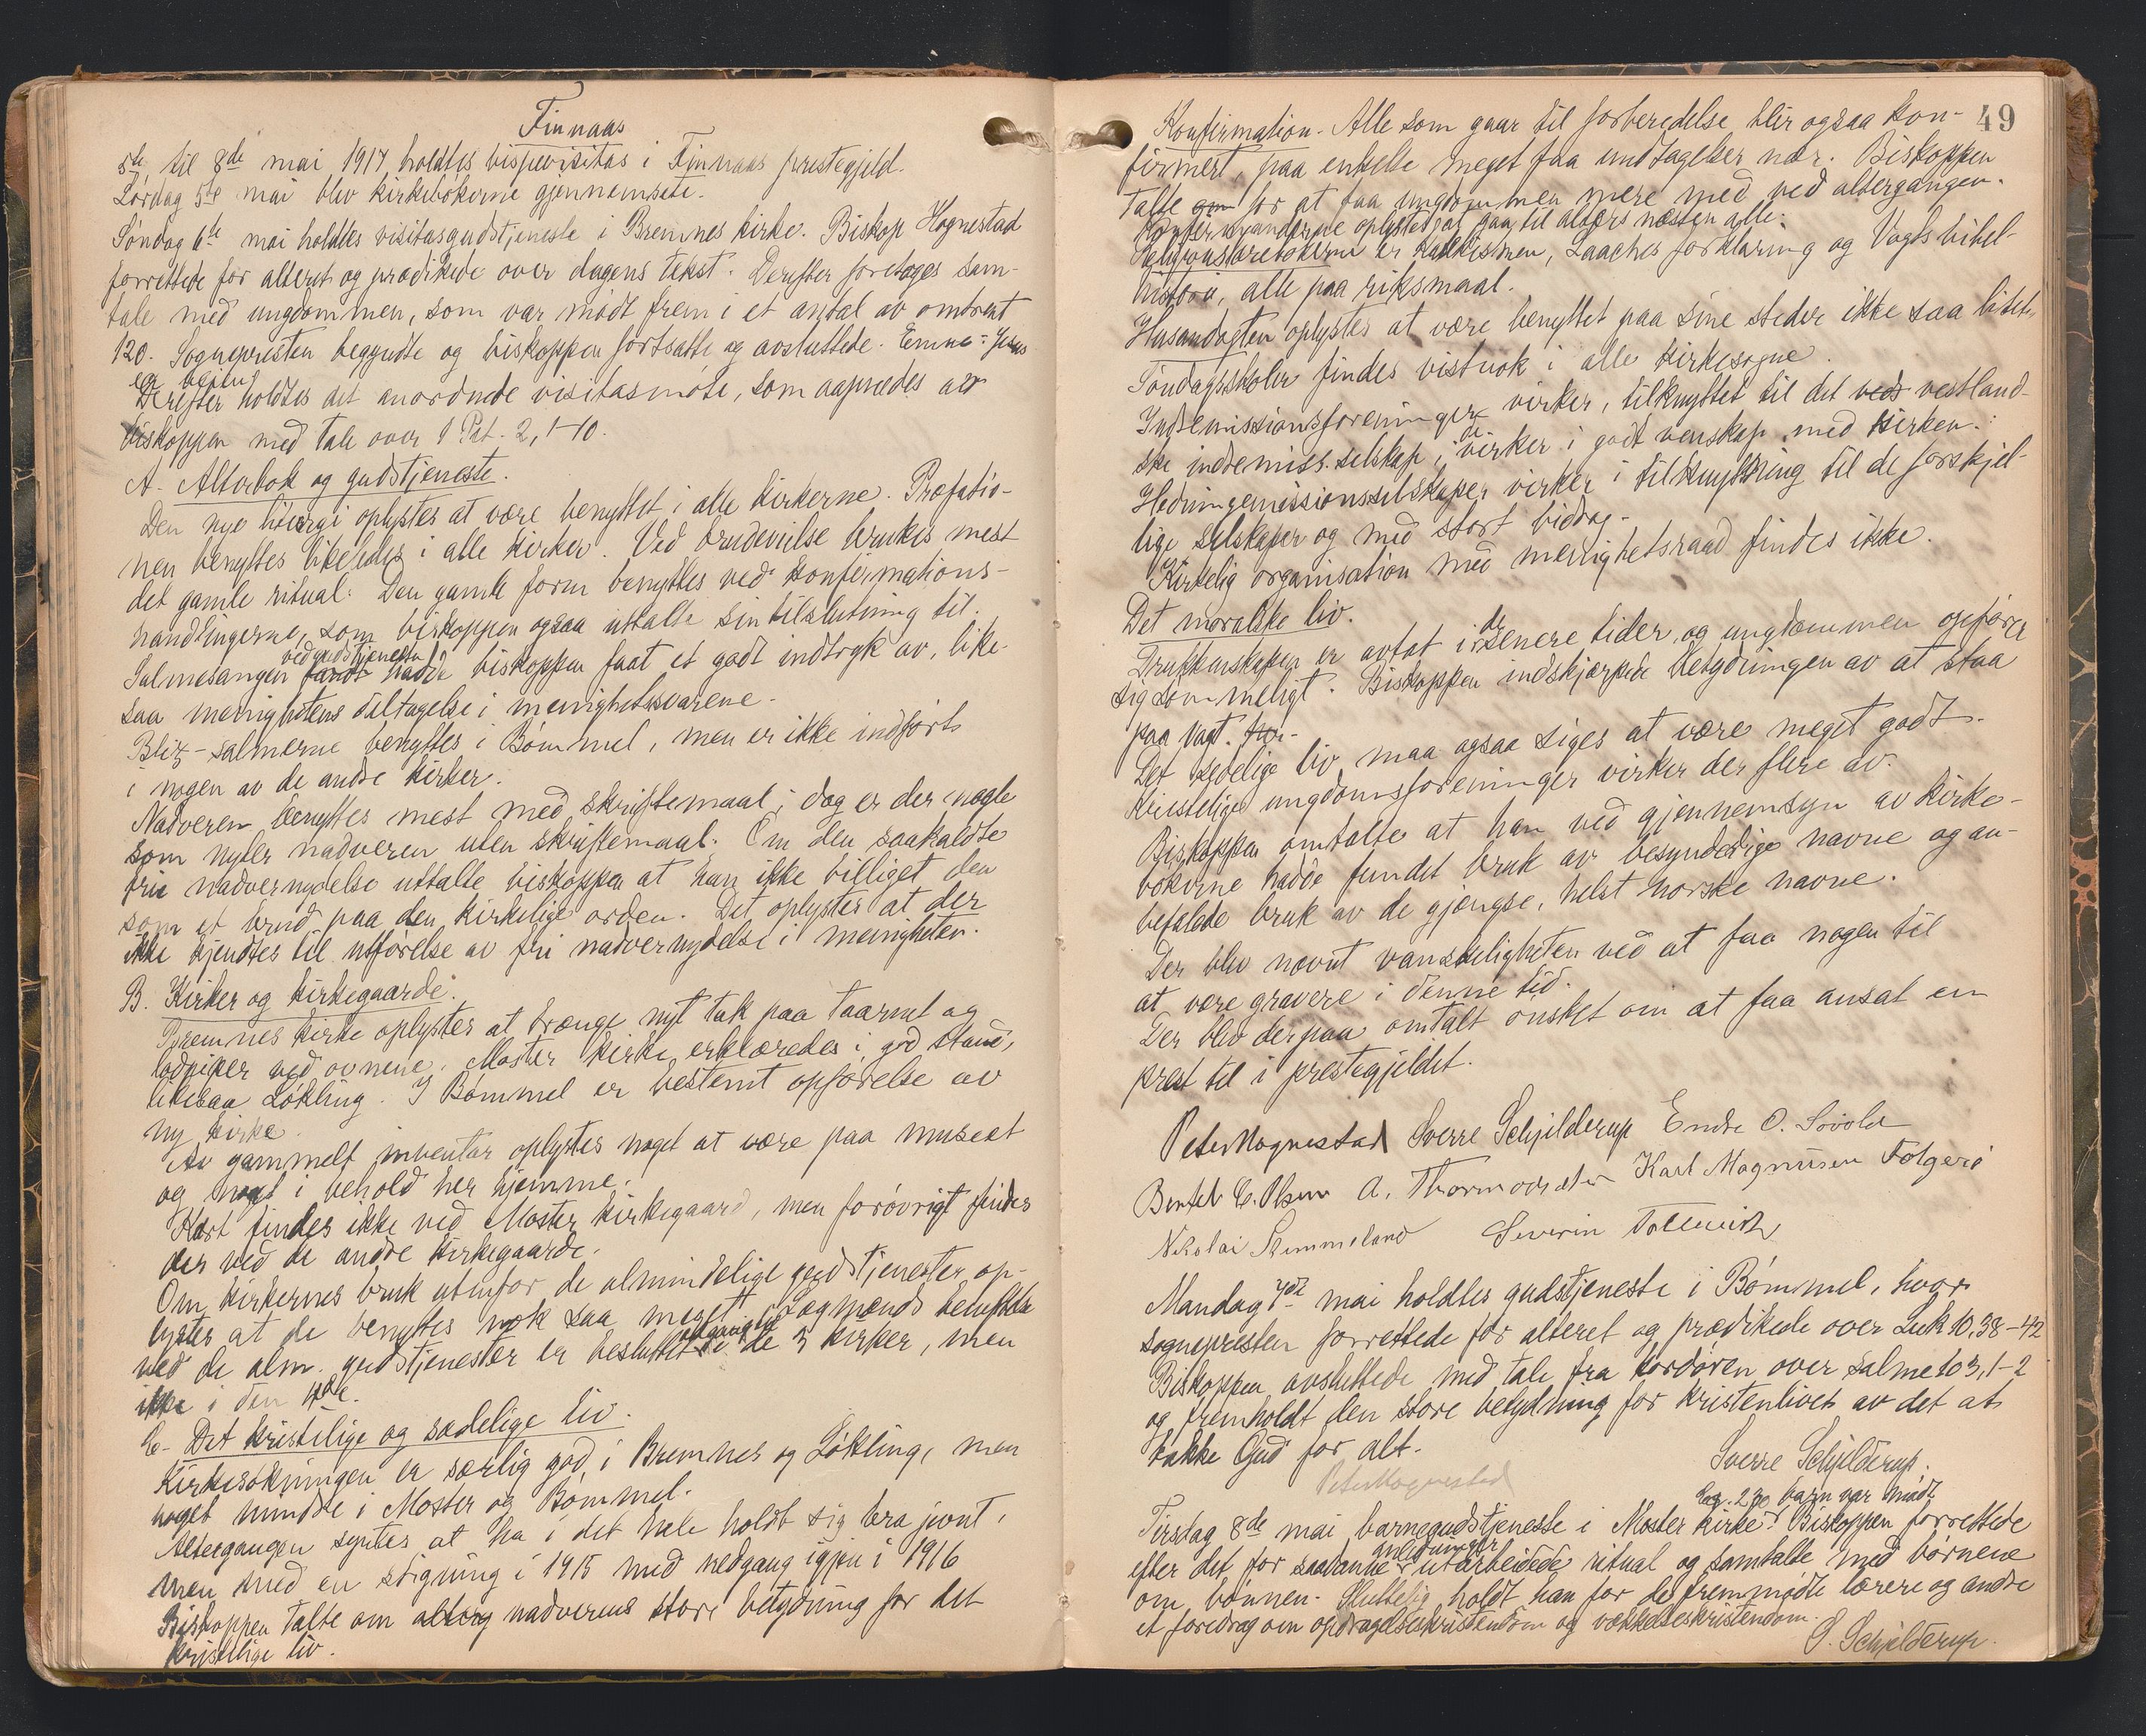 Finnaas
5te til 8de mai 1917 holdtes bispevisitas i Finnaas prestegjeld.
Lørdag 5te mai blev kirkebøkerne gjennemsete.
Søndag 6te mai holdtes visitasgudstjeneste i Bremnes kirke. Biskop Hognestad
forrettede for alteret og prædikede over dagens tekst. Derefter foretoges sam-
tale med ungdommen, som var mødt frem i et antal av omtrent
120. Sognepresten begyndte og biskoppen fortsatte og avsluttede. Emne: Jesus
er veien.
Derefter holdtes det anordnede visitasmøte, som aapnedes av
biskoppen med tale over 1 Pet. 2, 1-10.
A. Alterbok og gudstjeneste.
Den nye liturgi oplystes at være benyttet i alle kirkerne. Præfatio-
nen benyttes likeledes i alle kirker. Ved brudevielse brukes mest
det gamle ritual. Den gamle form benyttes ved konfirmations-
handlingerne, som biskoppen ogsaa uttalte sin tilslutning til.
ved gudstjenesten
Salmesangen fandt hadde biskoppen faat et godt indtryk av, like-
saa menighetens deltagelse i menighetssvarene.
Blix-salmerne benyttes i Bømmel, men er ikke indført
i nogen av de andre kirker.
Nadveren benyttes mest med skriftemaal; dog er der nogle
som nyter nadveren uten skriftemaal. Om den saakaldte
frie nadvernydelse uttalte biskoppen at han ikke billiget den
som et brud paa den kirkelige orden. Det oplystes at der
ikke kjendtes til utførelse av fri nadvernydelse i menigheten.
B. Kirker og kirkegaarde.
Bremnes kirke oplystes at trænge nyt tak paa taarnet og
lodpiper ved ovnene. Moster kirke erklæredes i god stand,
likesaa Løkling. I Bømmel er bestemt opførelse av
ny kirke.
Av gammelt inventar oplystes noget at være paa museet
og noget i behold her hjemme.
Kart findes ikke ved Moster kirkegaard, men forøvrigt findes
der ved de andre kirkegaarde.
Om kirkernes bruk utenfor de almindelige gudstjenester op-
lystes at de benyttes nok saa meget. Lægmænds benyttelse
ved de alm. gudstjenester er besluttet i de 3 kirker, men
ikke i den 4de.
C. Det kristelige og sædelige liv.
Kirkesøkningen er særlig god i Bremnes og Løkling, men
noget mindre i Moster og Bømmel.
Altergangen syntes at ha i det hele holdt sig bra jevnt,
men med en stigning i 1915 med nedgang igjen i 1916
Biskoppen talte om nadverens store betydning for det
kristelige liv.
49
Konfirmation. Alle som gaar til forberedelse blir ogsaa kon-
firmert, paa enkelte meget faa undtagelser nær. Biskoppen
talte om for at faa ungdommen mere med ved altergangen.
Konfirmanderne oplystes at gaa til alters næsten alle.
Religionslærebøkerne er katekismen, Laaches forklaring og Vogts bibel-
historie, alle paa riksmaal.
Husandagten oplystes at være benyttet paa sine steder ikke saa litet.
Søndagsskoler findes vistnok i alle kirkesogne.
Indremissionsforeninger virker, tilknyttet til det ved vestland-
ske indremiss. selskap; de virker i godt venskap med kirken.
Hedningemissionsselskaper virker i tilknytning til de forskjel-
lige selskaper og med stort bidrag.
Kirkelig organisation med menighetsraad findes ikke.
Det moralske liv.
Drukkenskapen er avtat i de senere tider, og ungdommen opfører
sig sømmeligt. Biskoppen indskjærpede betydningen av at staa
paa vagt. for-
Det sedelige liv maa ogsaa siges at være meget godt.
Kristelige ungdomsforeninger virker der flere av.
Biskoppen omtalte at han ved gjennemsyn av kirke-
bøkerne hadde fundet bruk av besynderlige navne og an-
befalede bruk av de gjængse, helst norske navne.
Der blev nævnt vanskeligheten ved at faa nogen til
at være gravere i denne tid.
Der blev derpaa omtalt ønsket om at faa ansat en
prest til i prestegjeldet.
Peter Hognestad Sverre Schjelderup Endre O. Søvold
Bertel C. Olsen A. Thormodsæter Karl Magnusen Folgerø
Nikolai Stemmeland Severin Tollevik
Mandag 7de mai holdtes gudstjeneste i Bømmel, hvor
sognepresten forrettede for alteret og prædikede over Luk 10, 38-42
Biskoppen avsluttede med tale fra kordøren over Salme 103, 1-2
og fremholdt den store betydning for kristenlivet av det at
takke Gud for alt.
Sverre Schjelderup.
Peter Hognestad
Ca. 230 barn var mødt
Tirsdag 8de mai barnegudstjeneste i Moster kirke. Biskoppen forrettede
anledninger
efter det for saadanne utarbeidede ritual og samtalte med børnene
om bønnen. Sluttelig holdt han for de fremmødte lærere og andre
et foredrag om opdragelseskristendom og vækkelseskristendom.
S. Schjelderup.